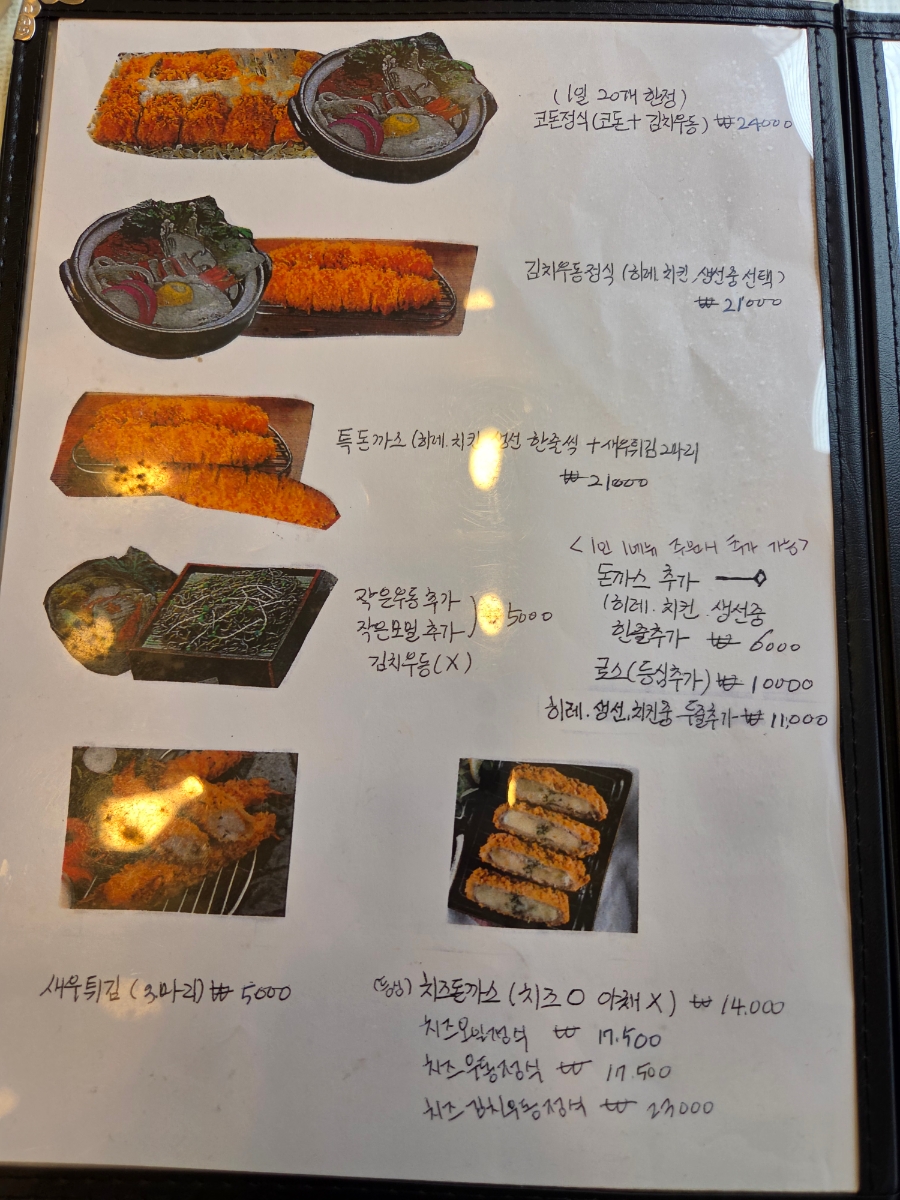 (1일 20개 한정)
코돈정식 (코돈 + 김치우동) ₩24000
김치우동정식 (히레.치킨.생선중 선택)
₩21000
특돈까스 (히레.치킨 생선 한줄씩 +새우튀김2마리
₩21000
작은우동추가
작은모밀추가 ) 5000
김치우동(X)
<1인 1메뉴 주문시 추가 가능>
돈까스 추가
(히레.치킨.생선중
한줄추가 ₩6000
로스(등심추가) ₩10000
히레.생선.치킨중 두줄추가 ₩11,000
새우튀김 (3마리) ₩5000
(등심) 치즈돈까스 (치즈O 야채X) ₩14.000
치즈모밀정식 ₩17.500
치즈우동정식 ₩17.500
치즈김치우동정식 ₩23000